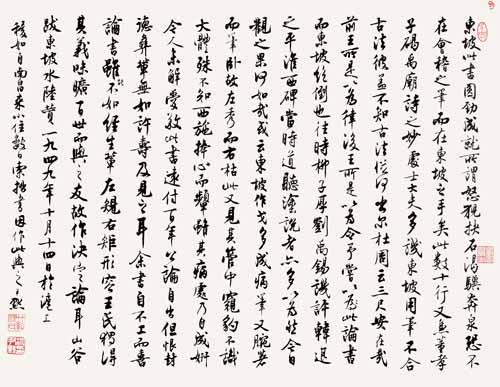 東坡此書圓劲成就所謂怒猊抉石渴驥奔泉恐不
在會稽之筆而在東坡之手矣此数十行又兼董孝
子碣禹廟詩之妙處士大夫多譏東坡用筆不合
古法彼蓋不知古法從何出尔杜周云三尺安在哉
前王所是以為律後王所是以為令予嘗以此論書
而東坡絕倒也往時柳子厚劉禹錫譏評韓退
之平淮西碑當時道聽塗說者亦多以為然今日
觀之果何如哉或云東坡作戈多成病筆又腕著
而筆卧故左秀而右枯此又見其管中窺豹不識
大體殊不知西施捧心而顰雖其病處乃自成妍
今人未解愛敬此書遠付百年公論自出但恨封
德彝輩無如許壽及見之耳余書自不工而喜
論書雖不如經生輩左規右矩形容王氏獨得
其義味曠百世而與之友故作決定之論耳山谷
跋東坡水陸贊一九四九年十月十四日於滬上
南昌来小住數日索拙書因作此與之尹默